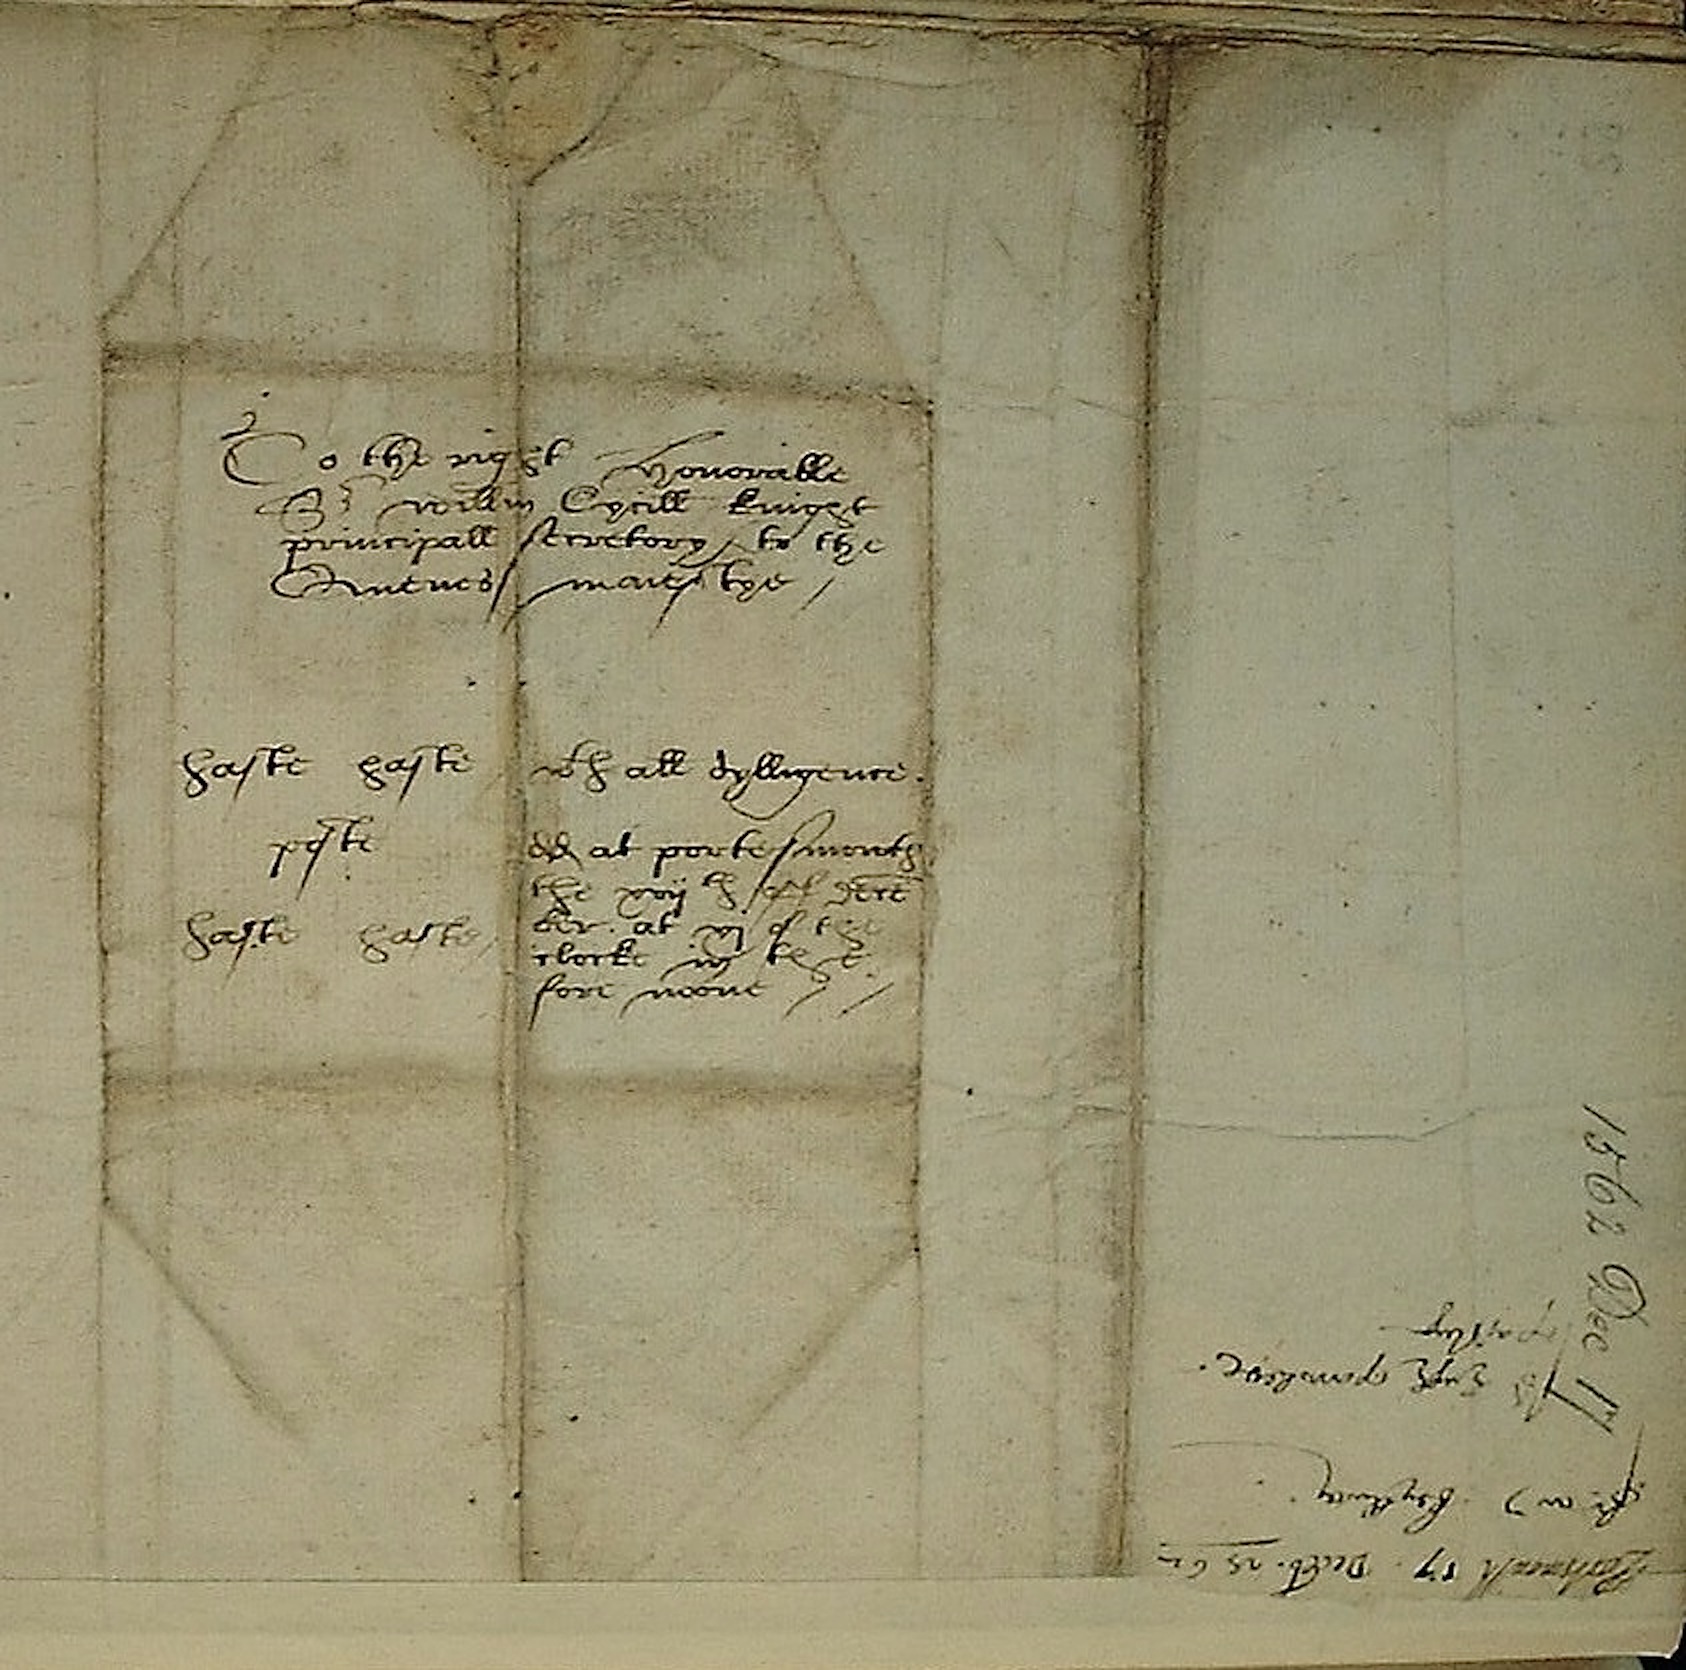 To the right honorable
Sr willm Cycill knight
principall secretory to the
Quenes maiestye /
haste haste wth all dylligence.
poste
haste haste /
dd at portesmouth
the xvijth of dece
ber. at vj of the
clocke in the
fore noone / /
1562 Dec 17
Portsmouth 17 Decēb. 1562